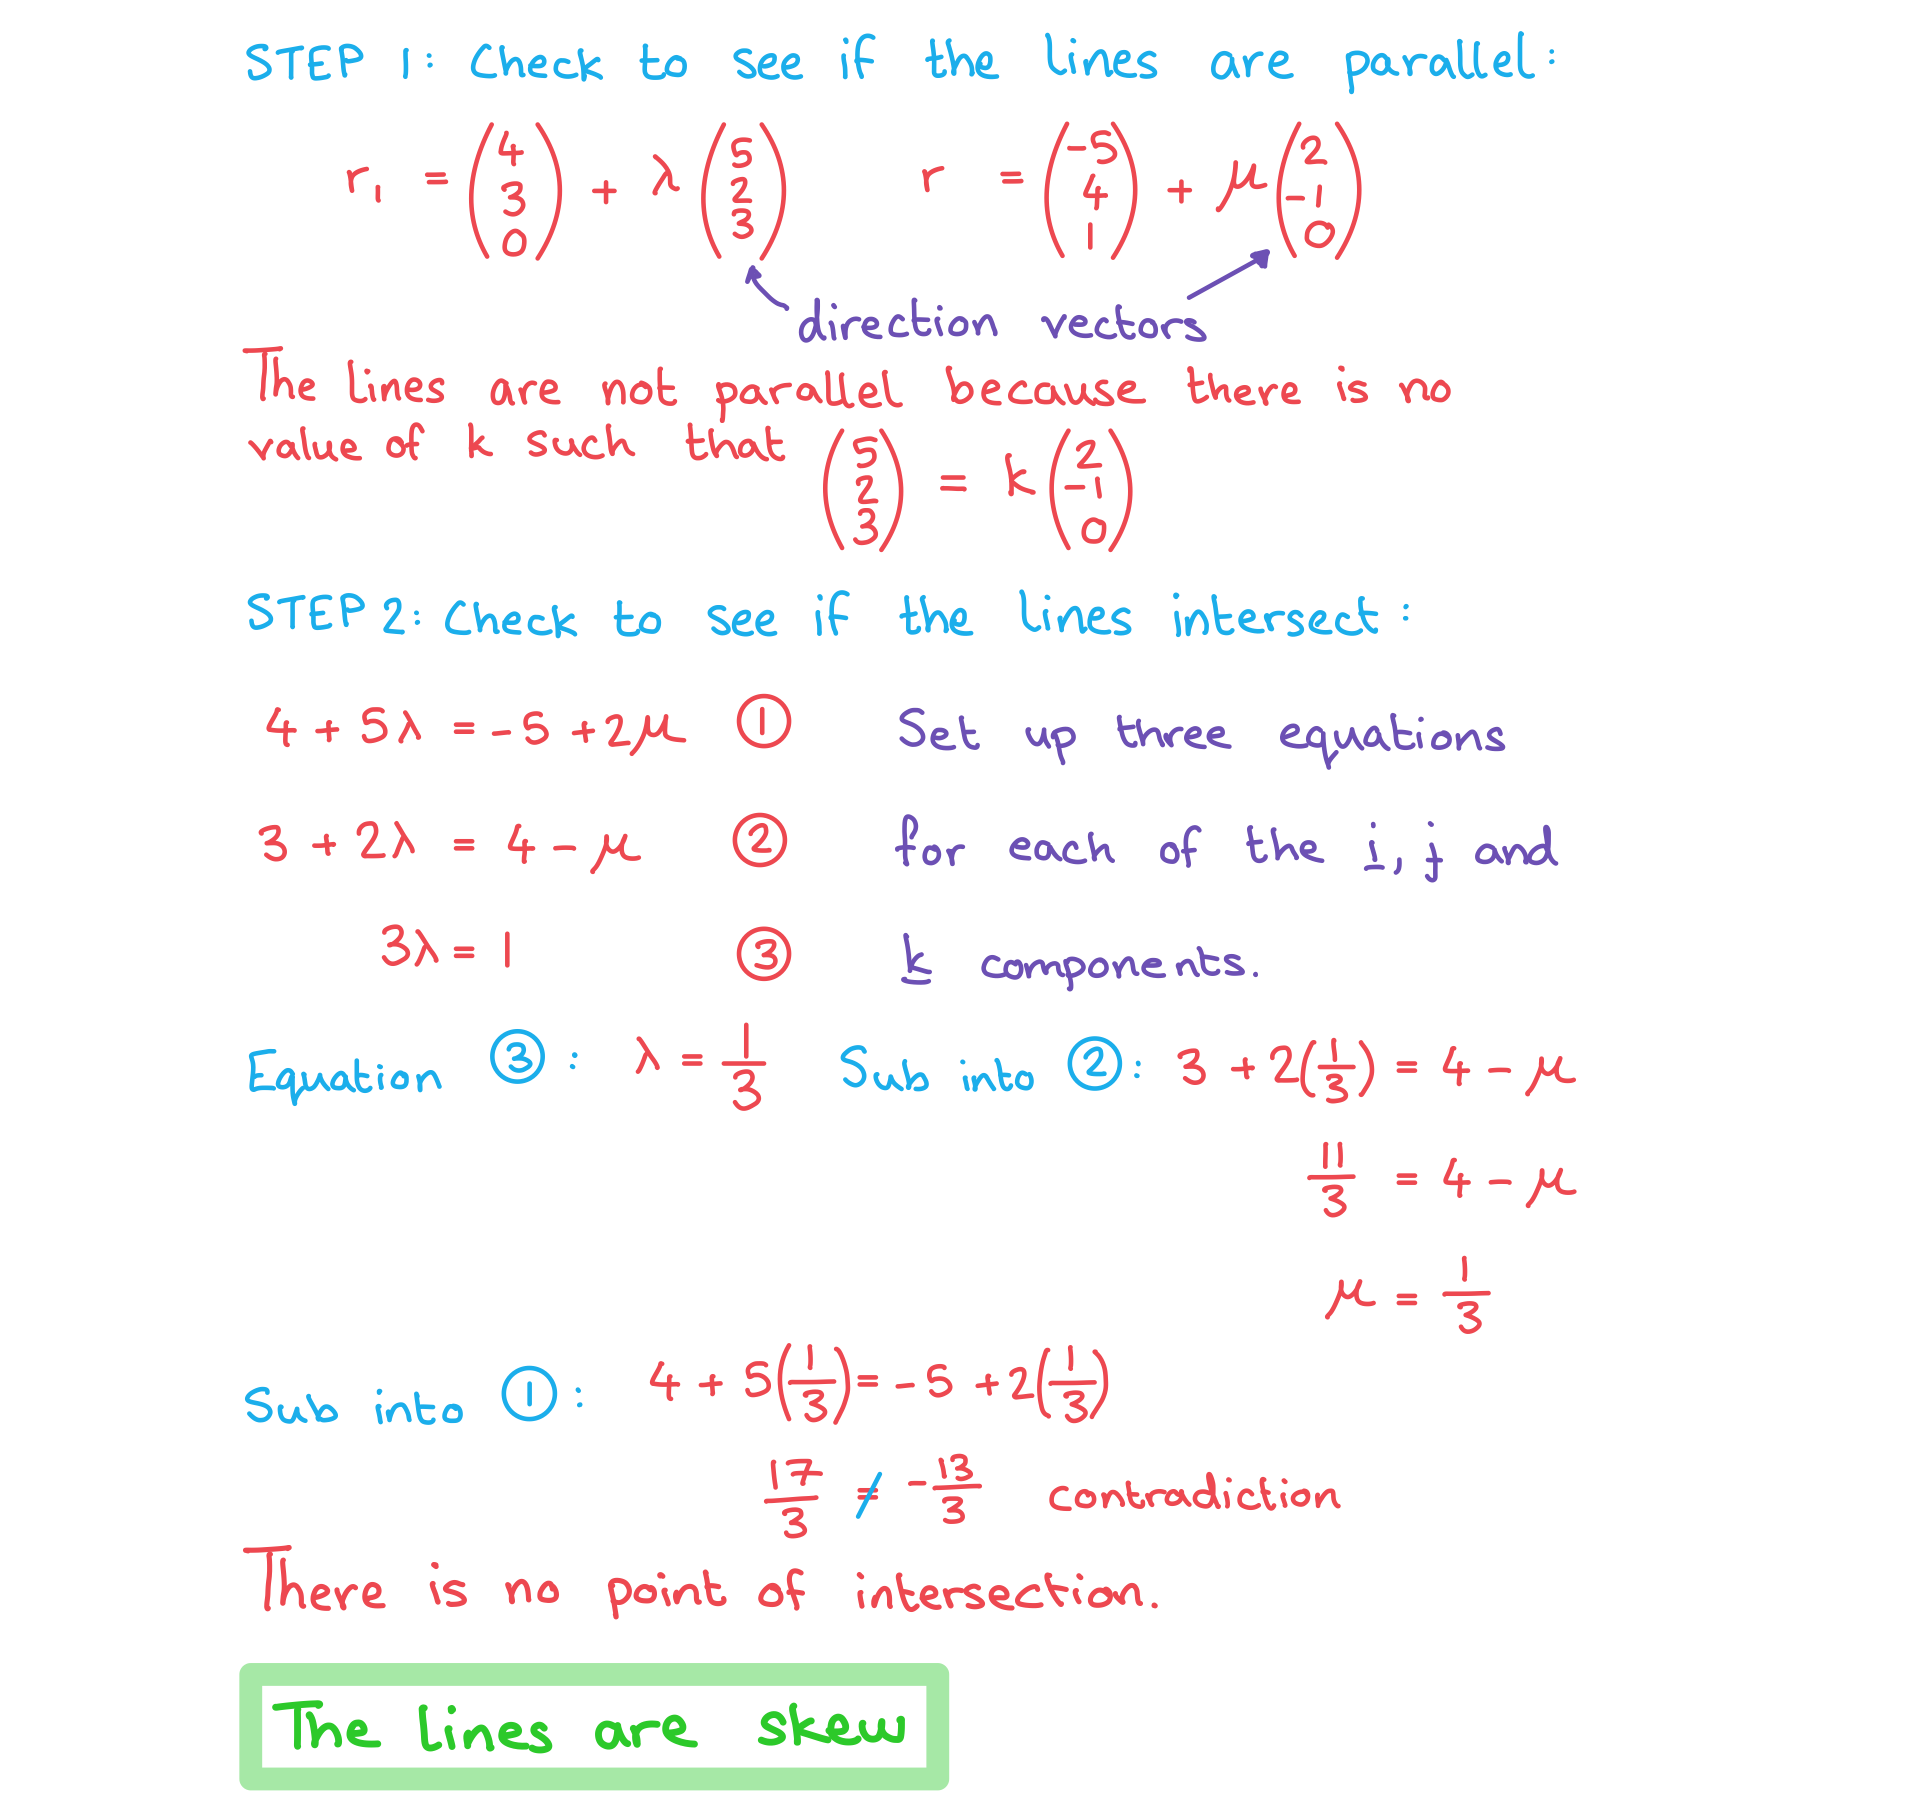 STEP 1: Check to see if the lines are parallel:
r₁ = (4 3 0) + λ (5 2 3) r = (-5 4 1) + μ (2 -1 0)
direction vectors
The lines are not parallel because there is no
value of k such that (5 2 3) = k (2 -1 0)
STEP 2: Check to see if the lines intersect:
4 + 5λ = -5 + 2μ ① Set up three equations
3 + 2λ = 4 - μ ② for each of the i, j and
3λ = 1 ③ k components.
Equation ③: λ = 1/3 Sub into ②: 3 + 2(1/3) = 4 - μ
11/3 = 4 - μ
μ = 1/3
Sub into ①: 4 + 5(1/3) = -5 + 2(1/3)
17/3 ≠ -13/3 contradiction
There is no point of intersection.
The lines are skew